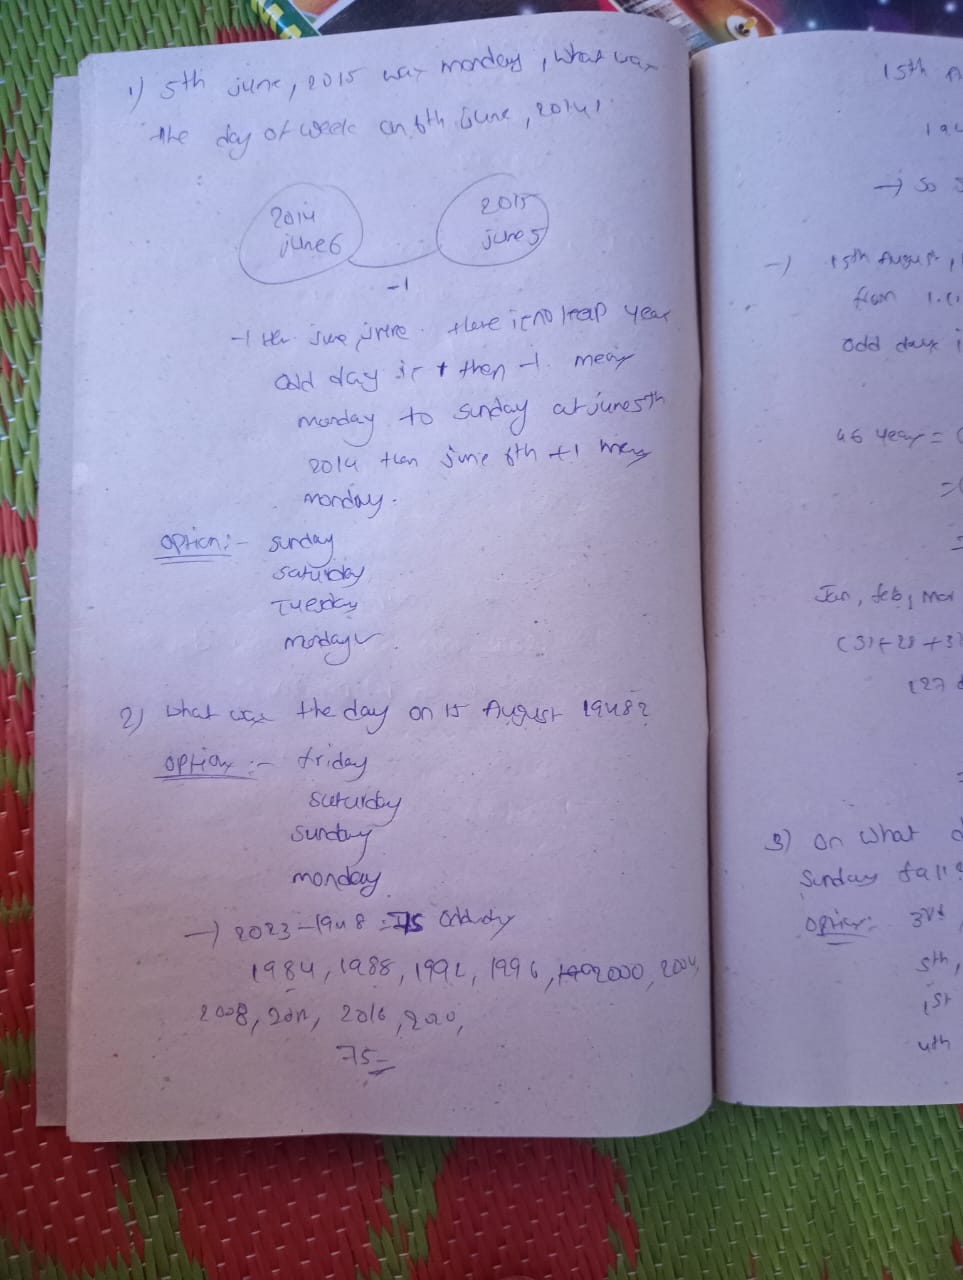 1) 5th june, 2015 was monday, what was
the day of week on 6th june, 2014?
2014
june 6
2015
june 5
-1
-1 there is no leap year
odd day is + then -1. means
monday to sunday at june 5th
2014 then june 6th +1 means
monday.
option:- sunday
saturday
Tuesday
monday✓
2) what was the day on 15 August 1948?
option :- friday
saturday
sunday
monday
→ 2023-1948 = 75 odd day
1984, 1988, 1992, 1996, 2000, 2004,
2008, 2012, 2016, 2020,
75=
15th
→ so
→ 15th August,
from 1.
odd days i
46 year =
Jan, feb, mar
(31+28+3
127 d
3) on what d
Sunday fall?
option: 3rd
5th,
1st
4th